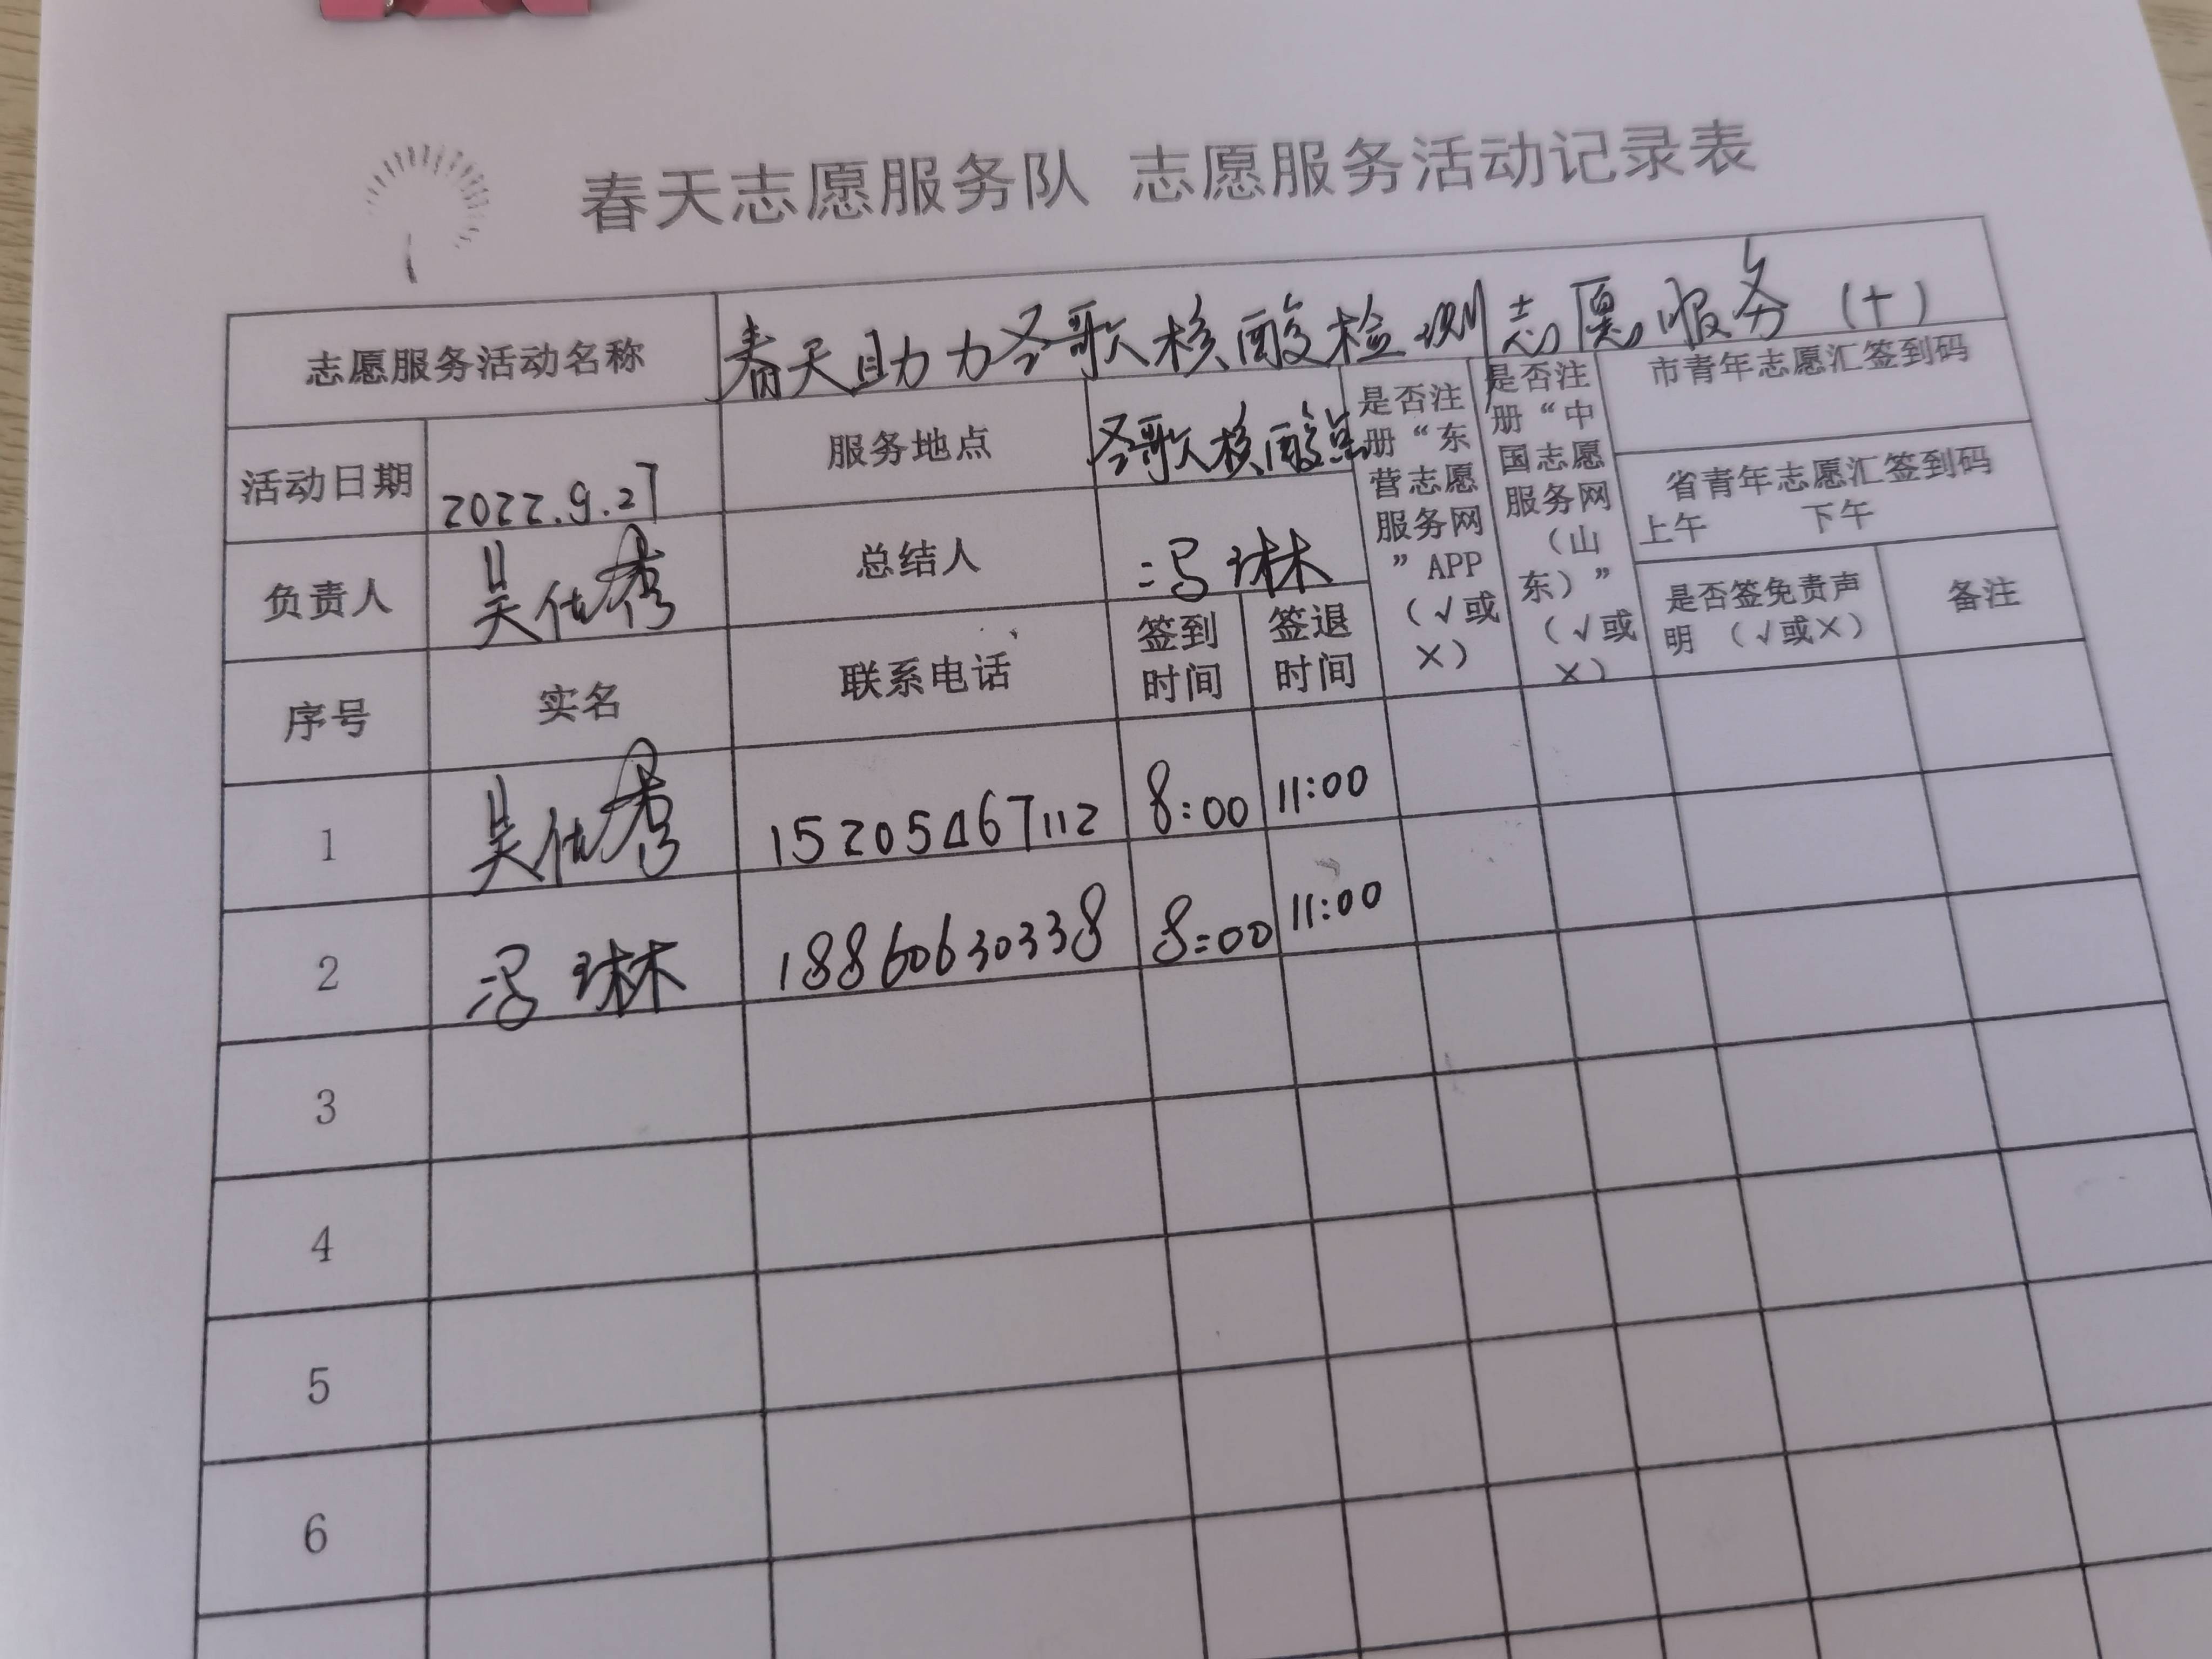 春天志愿服务队 志愿服务活动记录表
志愿服务活动名称 春天助力圣歌核酸检测志愿服务（十）
活动日期 2022.9.27 服务地点 圣歌核酸点
负责人 吴仕秀 总结人 冯琳
是否注册“东营志愿服务网”APP（√或×）
是否注册“中国志愿服务网（山东）”（√或×）
市青年志愿汇签到码
省青年志愿汇签到码
上午 下午
是否签免责声明 （√或×） 备注
序号 实名 联系电话 签到时间 签退时间
1 吴仕秀 15205467112 8:00 11:00
2 冯琳 18860630338 8:00 11:00
3
4
5
6